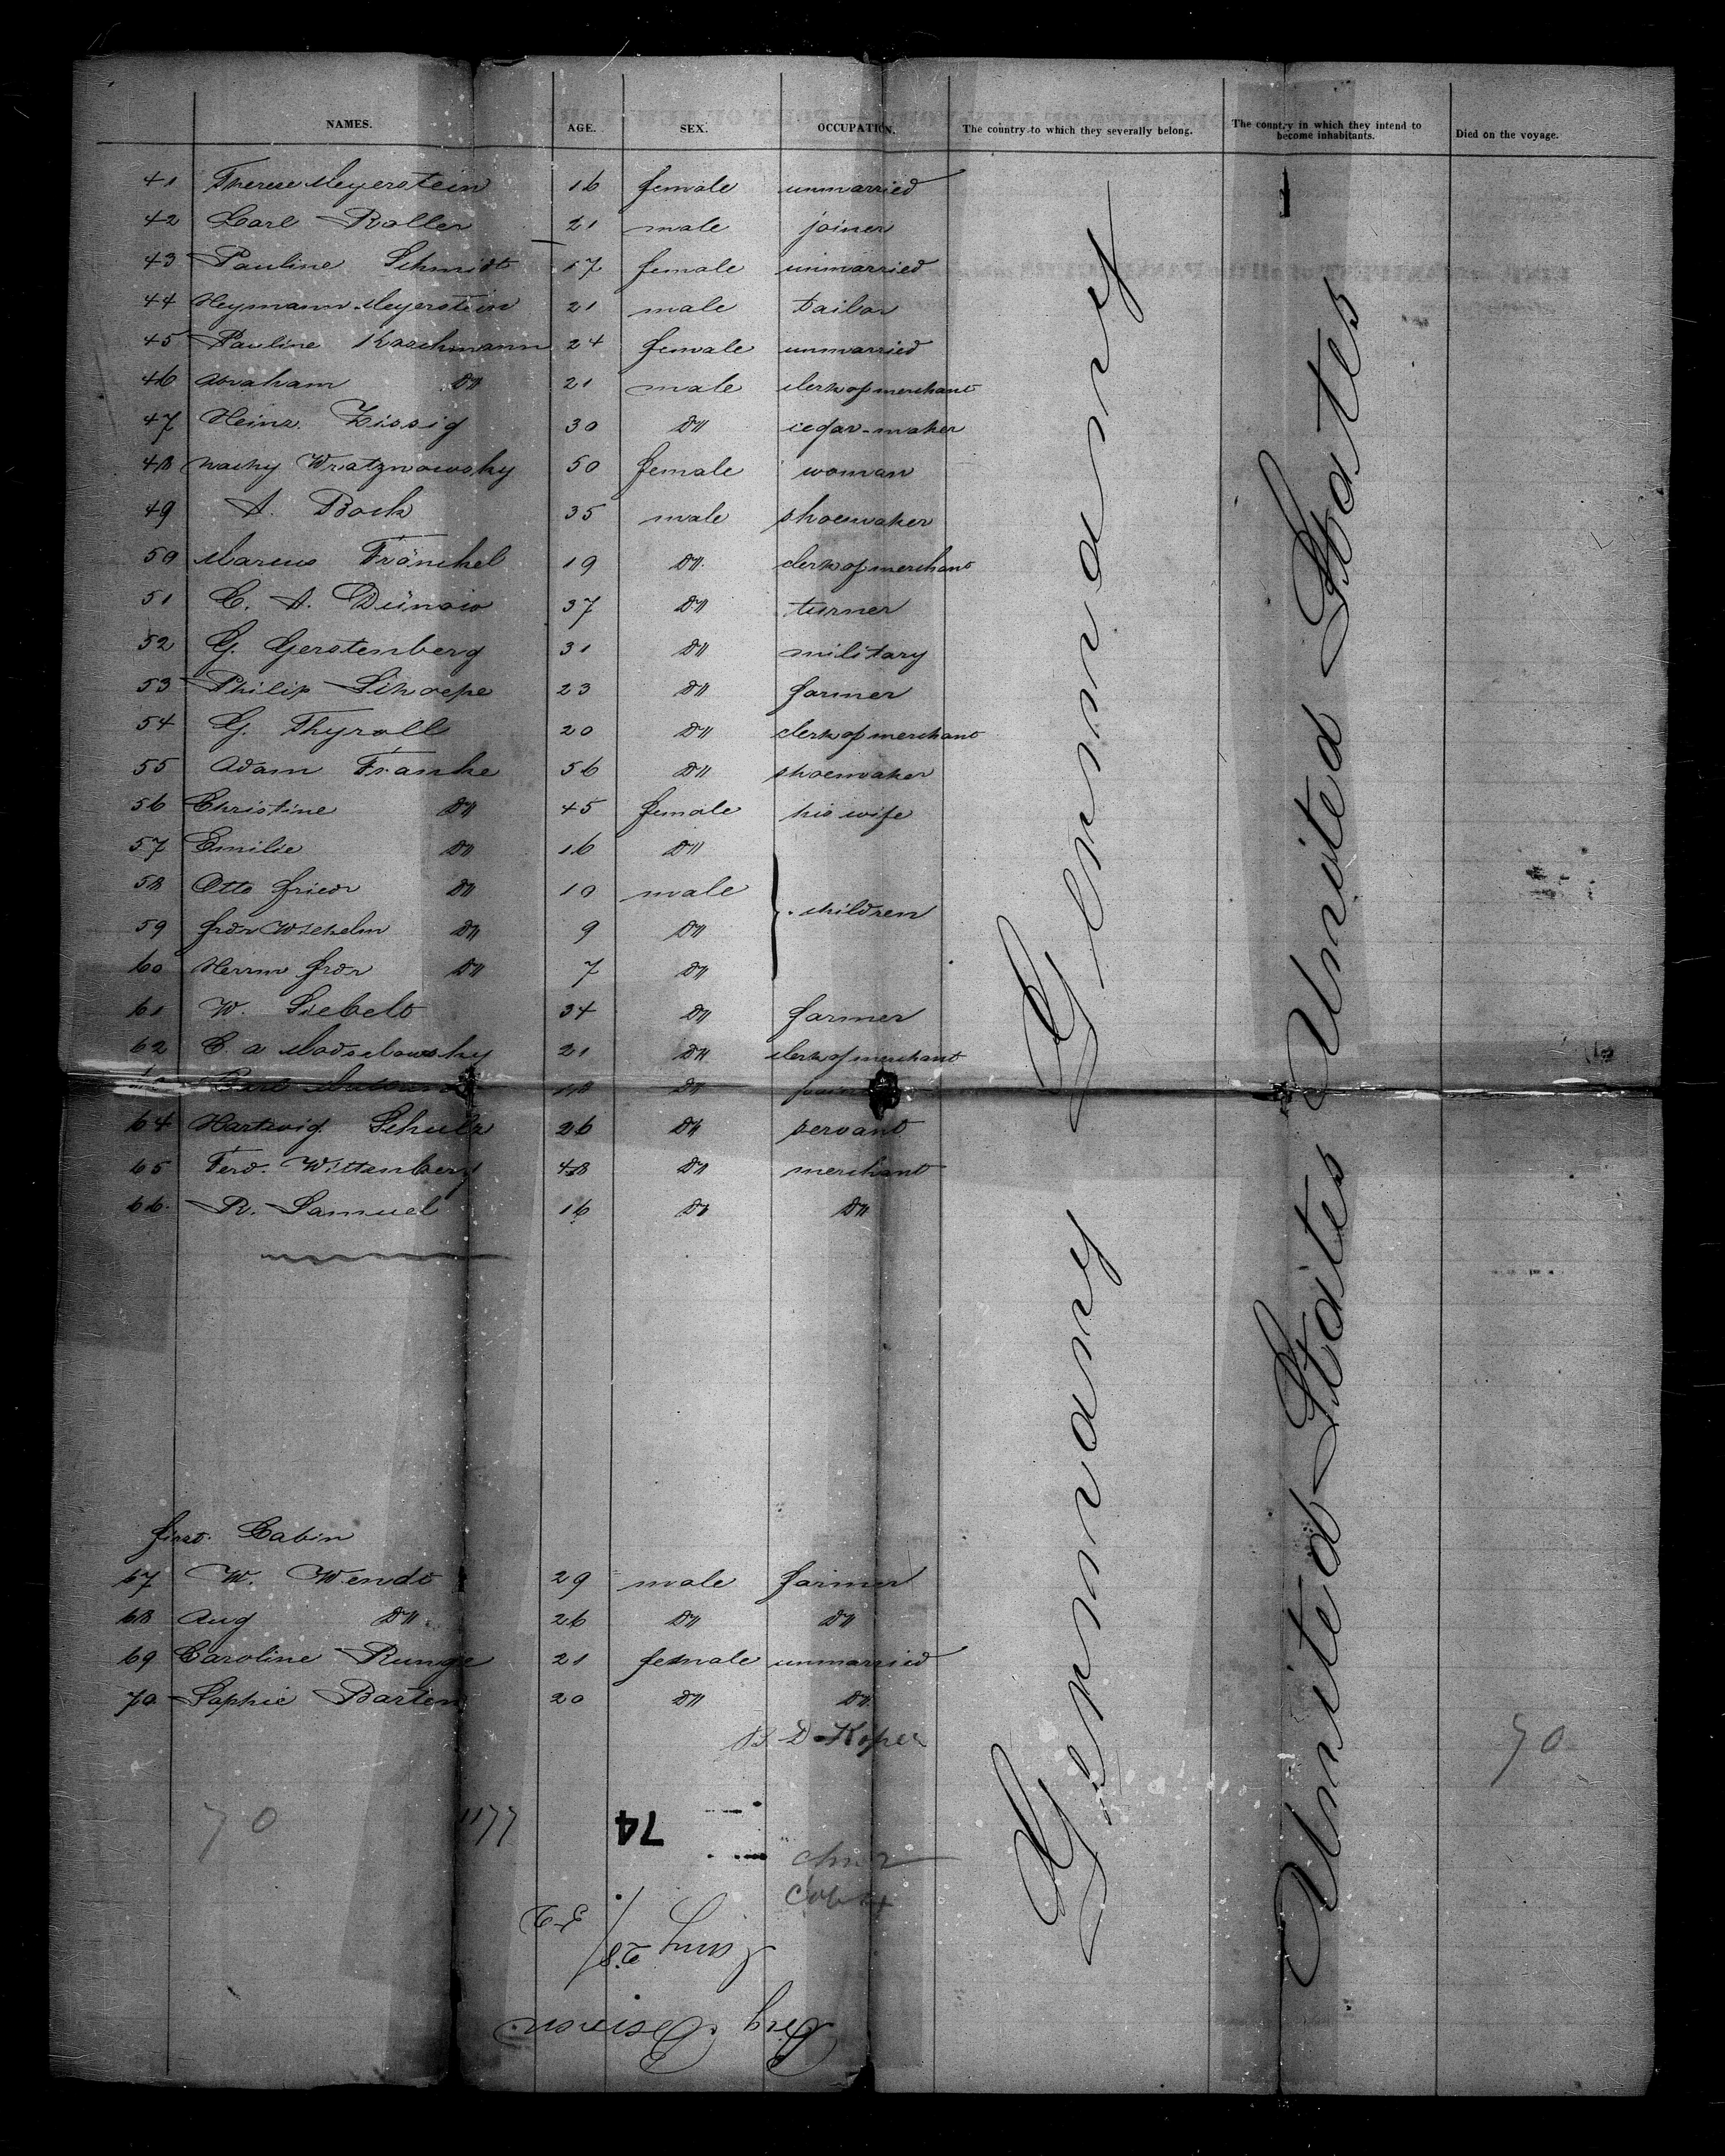 NAMES. AGE. SEX. OCCUPATION. The country to which they severally belong. The country in which they intend to become inhabitants. Died on the voyage.
41 Therese Meyerstein 16 female unmarried
42 Carl Roller 21 male joiner
43 Pauline Schmidt 17 female unmarried
44 Heymann Meyerstein 21 male tailor
45 Pauline Kaschmann 24 female unmarried
46 Abraham Do 21 male clerk of merchant
47 Heinr. Zissig 30 Do cegar-maker
48 Wratznowsky 50 female woman
49 A. Bock 35 male shoemaker
50 Marcus Fränckel 19 Do clerk of merchant
51 C. A. Dünow 37 Do turner
52 G. Gerstenberg 31 Do military
53 Philip 23 Do farmer
54 G. Thyroll 20 Do clerk of merchant
55 Adam Franke 56 Do shoemaker
56 Christine Do 45 female his wife
57 Emilie Do 16 Do
58 Otto Friedr Do 10 male
children
59 Fredr Wilhelm Do 9 Do
60 Herrm Fredr Do 7 Do
61 W. Siebelt 34 Do farmer
62 C. A 21 Do clerk of merchant
Carl 18 Do
64 Hartwig Schulz 26 Do servant
65 Ferd. Wittenberg 48 Do merchant
66. R. Samuel 16 Do Do
Germany
United States
first Cabin
67 W. Wendt 29 male farmer
68 Aug Do 26 Do Do
69 Caroline Runge 21 female unmarried
70 Sophie Barten 20 Do Do
Germany
United States
D Koper
70
70 1177 74
Brig